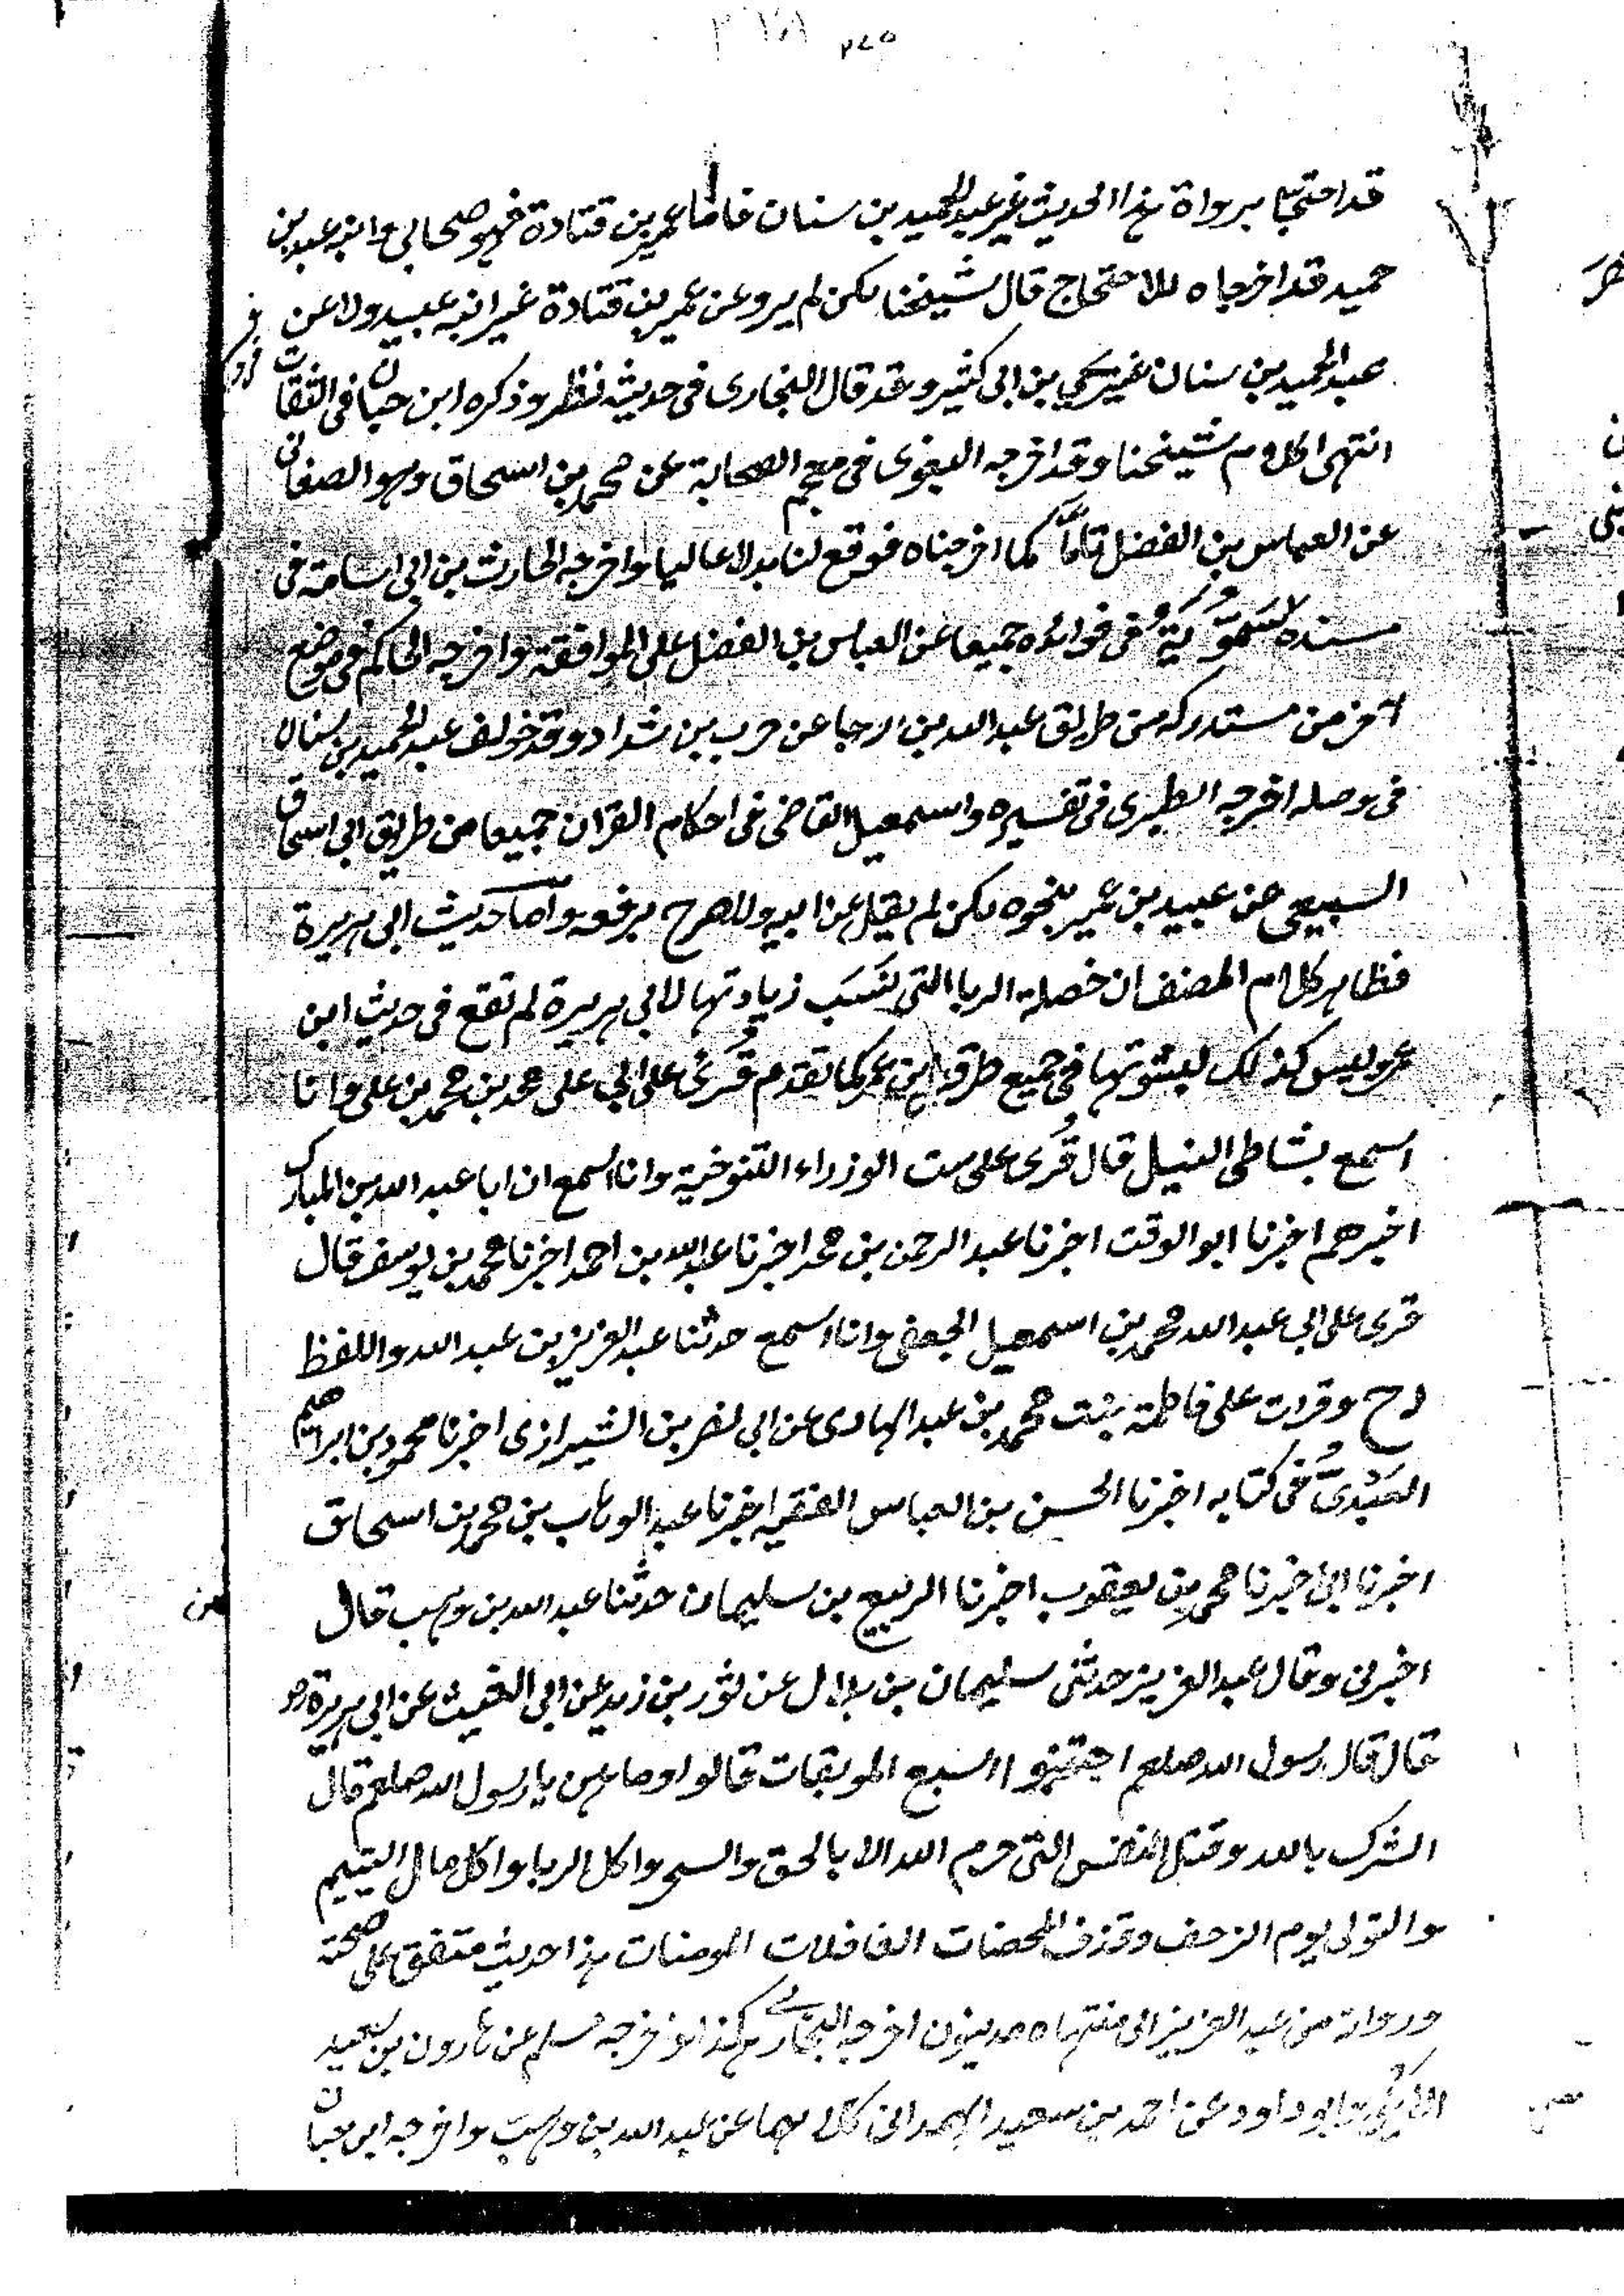 ٣٧٨ ٣٧٥
قد احتجا برواة هذا الحديث غير عبد الحميد بن سنان فاما عمير بن قتادة فهو صحابى وابنه عبيد بن
حميد قد اخرجاه للاحتجاج قال شيخنا لكن لم يرو عن عمير بن قتادة غير ابنه عبيد ولا عن
عبد الحميد بن سنان غير يحيى بن ابى كثير وقد قال البخارى فى حديثه نظر وذكره ابن حبان فى الثقات
انتهى كلام شيخنا وقد اخرجه البغوى فى معجم الصحابة عن محمد بن اسحاق وهو الصغانى
عن العباس بن الفضل تامًّا كما اخرجناه فوقع لنا بدلا عاليا واخرجه الحارث بن ابى اسامة فى
مسنده وسَمُّوية فى فوائده جميعا عن العباس بن الفضل على الموافقة واخرجه الحاكم فى موضع
آخر من مستدركه من طريق عبد الله بن رجا عن حرب بن شداد وقد خولف عبد الحميد بن سنان
فى وصله اخرجه الطبرى فى تفسيره واسمعيل القاضى فى احكام القران جميعا من طريق ابى اسحاق
السبيعى عن عبيد بن عمير بنحوه لكن لم يقل عن ابيه ولا صرح برفعه واما حديث ابى هريرة
فظاهر كلام المصنف ان خصلة الربا التى نَسَبَ زيادتها لابى هريرة لم تقع فى حديث ابن
عمر وليس كذلك لثبوتها فى جميع طرق ابن عمر كما تقدم قُرِئ على ابى على محمد بن محمد بن على وانا
اسمع بشاطى النيل قال قُرى على ست الوزراء التنوخية وانا اسمع ان ابا عبد الله بن المبارك
اخبرهم اخبرنا ابو الوقت اخبرنا عبد الرحمن بن محمد اخبرنا عبد الله بن احمد اخبرنا محمد بن يوسف قال
قرى على ابى عبد الله محمد بن اسمعيل الجعفى وانا اسمع حدثنا عبد العزيز بن عبد الله واللفظ
له ح وقرات على فاطمة بنت محمد بن عبد الهادى عن ابى نصر بن الشيرازى اخبرنا محمود بن ابراهيم
العَبْدىّ فى كتابه اخبرنا الحسن بن العباس الفقيه اخبرنا عبد الوهاب بن محمد بن اسحاق
اخبرنا ابى اخبرنا محمد بن يعقوب اخبرنا الربيع بن سليمان حدثنا عبد الله بن وهب قال
اخبرنى وقال عبد العزيز حدثنى سليمان بن بلال عن ثور بن زيد عن ابى الغيث عن ابى هريرة رض
قال قال رسول الله صلعم اجتنبوا السبع الموبقات قالوا وما هن يا رسول الله صلعم قال
الشرك بالله وقتل النفس التى حرم الله الا بالحق والسحر واكل الربا واكل مال اليتيم
والتولى يوم الزحف وقذف المحصنات الغافلات المومنات هذا حديث متفق على صحته
ورواته من عبد العزيز الى منتهاه مدنيون اخرجه البخارى هكذا واخرجه مسلم عن هارون بن سعيد
الايلى وابو داود عن احمد بن سعيد الهمدانى كلاهما عن عبد الله بن وهب واخرجه ابن حبان